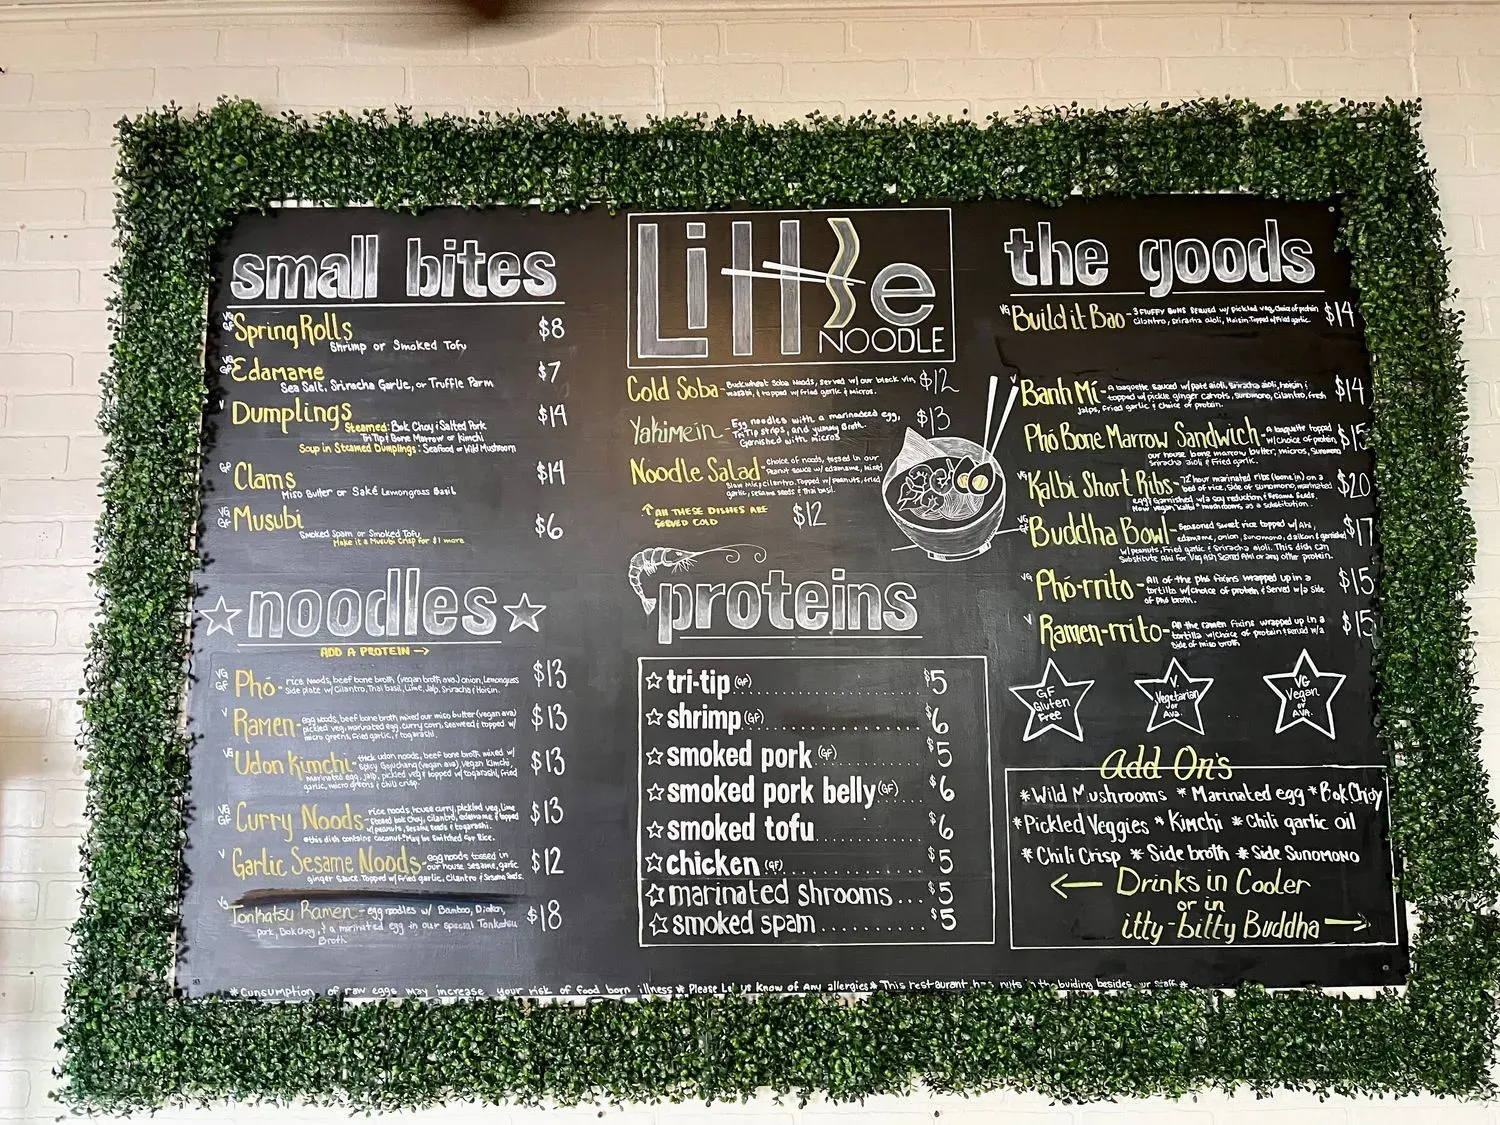 small bites
VG
GF
Spring Rolls $8
Shrimp or Smoked Tofu
VG
GF
Edamame $7
Sea Salt, Sriracha Garlic, or Truffle Parm
V
Dumplings $14
Steamed: Bok Choy & Salted Pork
Tri Tip & Bone Marrow or Kimchi
Soup in Steamed Dumplings: Seafood or Wild Mushroom
GF
Clams $14
Miso Butter or Saké Lemongrass Basil
VG
GF
Musubi $6
Smoked Spam or Smoked Tofu
Make it a Musubi Crisp for $1 more
noodles
ADD A PROTEIN →
VG
GF
Phó - rice noods, beef bone broth (vegan broth ava.) onion, Lemongrass $13
side plate w/ Cilantro, Thai basil, Lime, Jalp, Sriracha & Hoisin.
V
Ramen - egg noods, beef bone broth mixed our miso butter (vegan ava) $13
pickled veg, marinated egg, curry corn, seaweed & topped w/
micro greens, fried garlic, & togarashi.
VG
Udon Kimchi - thick udon noods, beef bone broth mixed w/ $13
spicy Gojuchang (vegan ava), vegan Kimchi,
marinated egg, jalp, pickled veg & topped w/ togarashi, fried
garlic, micro greens & chili crisp.
VG
GF
Curry Noods - rice noods, house curry, pickled veg, lime $13
steamed bok choy, cilantro, edamame & topped
w/ peanuts, sesame seeds & togarashi.
*this dish contains coconut* May be switched for Rice.
V
Garlic Sesame Noods - egg noods tossed in $12
our house sesame, garlic
ginger sauce. Topped w/ fried garlic, Cilantro & Sesame Seeds.
VG
Tonkatsu Ramen - egg noodles w/ Bamboo, Diakon, $18
pork, Bok Choy, & a marinated egg in our special Tonkatsu
Broth
Little
NOODLE
Cold Soba - Buckwheat Soba Noods, served w/ our black vin, $12
wasabi, & topped w/ fried garlic & micros.
Yakimein - Egg noodles with a marinadeed egg, $13
Tri Tip strips, and yummy Broth.
Garnished with micros
Noodle Salad - choice of noods, tossed in our
Peanut sauce w/ edamame, mixed
slaw mix, cilantro. Topped w/ peanuts, fried
garlic, sesame seeds & Thai basil.
↑ All THESE DISHES ARE
SERVED COLD
$12
proteins
☆ tri-tip (GF) $5
☆ shrimp (GF) $6
☆ smoked pork (GF) $5
☆ smoked pork belly (GF) $6
☆ smoked tofu $6
☆ chicken (GF) $5
☆ marinated shrooms... $5
☆ smoked spam $5
the goods
VG
Build it Bao - 3 FLUFFY BUNS SERVED w/ pickled veg, Choice of protein $14
Cilantro, sriracha aioli, Hoisin, Topped w/ Fried garlic.
V
Banh Mí - a baguette sauced w/ pate aioli, sriracha aioli, hoisin & $14
topped w/ pickle ginger carrots, sunomono, cilantro, fresh
jalps, fried garlic & choice of protein.
Phó Bone Marrow Sandwich - a baguette topped $15
w/ choice of protein,
our house bone marrow butter, micros, Sunomono
Sriracha aioli & Fried garlic.
VG
Kalbi Short Ribs - 72 hour marinated ribs (bone in) on a $20
bed of rice, side of sunomono, marinated
egg & garnished w/ a soy reduction, & sesame seeds.
Now vegan "kalbi" mushrooms as a substitution.
VG
GF
Buddha Bowl - Seasoned sweet rice topped w/ Ahi, $17
edamame, onion, sunomono, daikon & garnished
w/ peanuts, Fried garlic & sriracha aioli. This dish can
Substitute Ahi for Veg Ash Seared Ahi or any other protein.
VG
Phó-rrito - All of the phó fixins wrapped up in a $15
tortilla w/ choice of protein & Served w/ a side
of phó broth.
V
Ramen-rrito - All the ramen fixins wrapped up in a $15
tortilla w/ Choice of protein & served w/ a
Side of miso broth
GF
Gluten
Free
V
Vegetarian
or
Ava.
VG
Vegan
or
AVA.
Add On's
*Wild Mushrooms *Marinated egg *Bok Choy
*Pickled Veggies *Kimchi *Chili garlic oil
*Chili Crisp *Side broth *Side Sunomono
← Drinks in Cooler
or in
itty-bitty Buddha →
*Cunsumption of raw eggs may increase your risk of food born illness* Please Let us Know of Any allergies* This restaurant has nuts in the buiding besides our Staff *